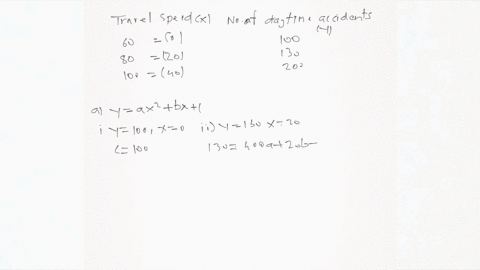 Travel Speed(x) No. of daytime accidents
(Y)
60 = (0) 100
80 = (20) 130
100 = (40) 200
a) Y = ax² + bx + c
i Y = 100, x = 0 ii) Y = 130 x = 20
C = 100 130 = 400a + 20b